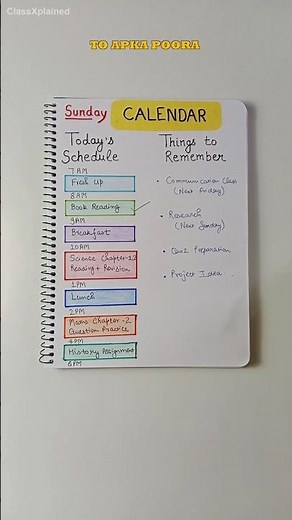 ClassXplained
TO APKA POORA
Sunday CALENDAR
Today's
Schedule
7 AM
Fresh Up
8 AM
Book Reading
9AM
Breakfast
10AM
Science Chapter-1,2
Reading + Revision
1PM
Lunch
2PM
Maths Chapter-2
Question Practice
4PM
History Assignment
6PM
Things to
Remember
Communication Class
(Next Friday)
Research
(Next Sunday)
Quiz Preparation
Project Idea